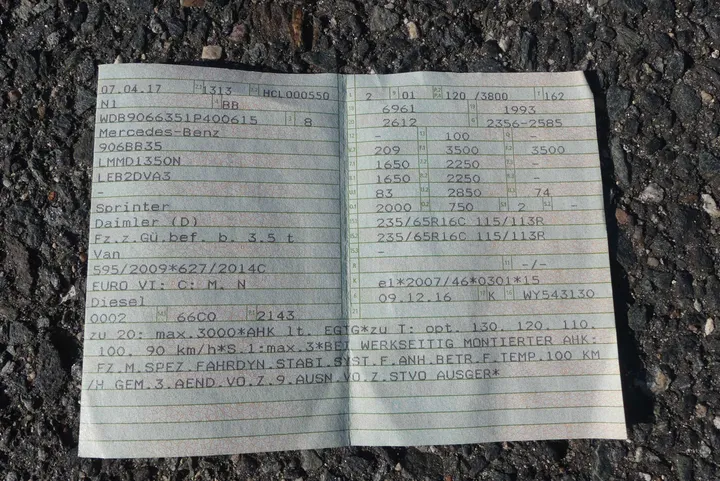 07.04.17 1313 HCL000550
N1 BB
WDB9066351P400615 8
Mercedes-Benz
906BB35
LMMD1350N
LEB2DVA3
-
Sprinter
Daimler (D)
Fz.z.Gü.bef. b. 3.5 t
Van
595/2009*627/2014C
EURO VI: C: M, N
Diesel
0002 66C0 2143
2 01 120 /3800 162
6961 1993
2612 2356-2585
- 100 -
209 3500 3500
1650 2250 -
1650 2250 -
83 2850 74
2000 750 2 -
235/65R16C 115/113R
235/65R16C 115/113R
-
-/-
e1*2007/46*0301*15
09.12.16 K WY543130
zu 20: max.3000*AHK lt. EGTG*zu T: opt. 130, 120, 110,
100, 90 km/h*S.1:max.3*BEI WERKSEITIG MONTIERTER AHK:
FZ.M.SPEZ.FAHRDYN.STABI.SYST.F.ANH.BETR.F.TEMP.100 KM
/H GEM.3.AEND.VO.Z.9.AUSN.VO.Z.STVO AUSGER*